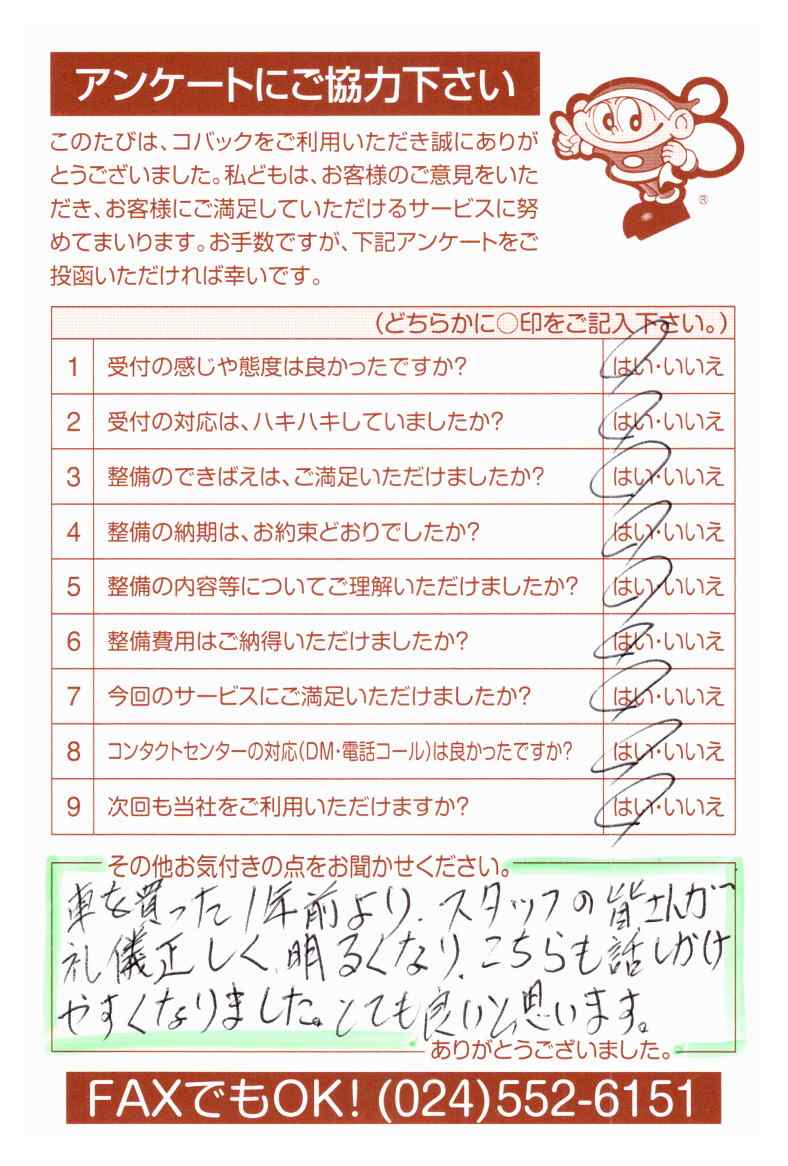 アンケートにご協力下さい
このたびは、コバックをご利用いただき誠にありが
とうございました。私どもは、お客様のご意見をいた
だき、お客様にご満足していただけるサービスに努
めてまいります。お手数ですが、下記アンケートをご
投函いただければ幸いです。
®
(どちらかに○印をご記入下さい。)
1 受付の感じや態度は良かったですか? はい・いいえ
2 受付の対応は、ハキハキしていましたか? はい・いいえ
3 整備のできばえは、ご満足いただけましたか? はい・いいえ
4 整備の納期は、お約束どおりでしたか? はい・いいえ
5 整備の内容等についてご理解いただけましたか? はい・いいえ
6 整備費用はご納得いただけましたか? はい・いいえ
7 今回のサービスにご満足いただけましたか? はい・いいえ
8 コンタクトセンターの対応(DM・電話コール)は良かったですか? はい・いいえ
9 次回も当社をご利用いただけますか? はい・いいえ
その他お気付きの点をお聞かせください。
車を買った1年前より、スタッフの皆さんが
礼儀正しく、明るくなり、こちらも話しかけ
やすくなりました。とても良いと思います。
ありがとうございました。
FAXでもOK! (024)552-6151